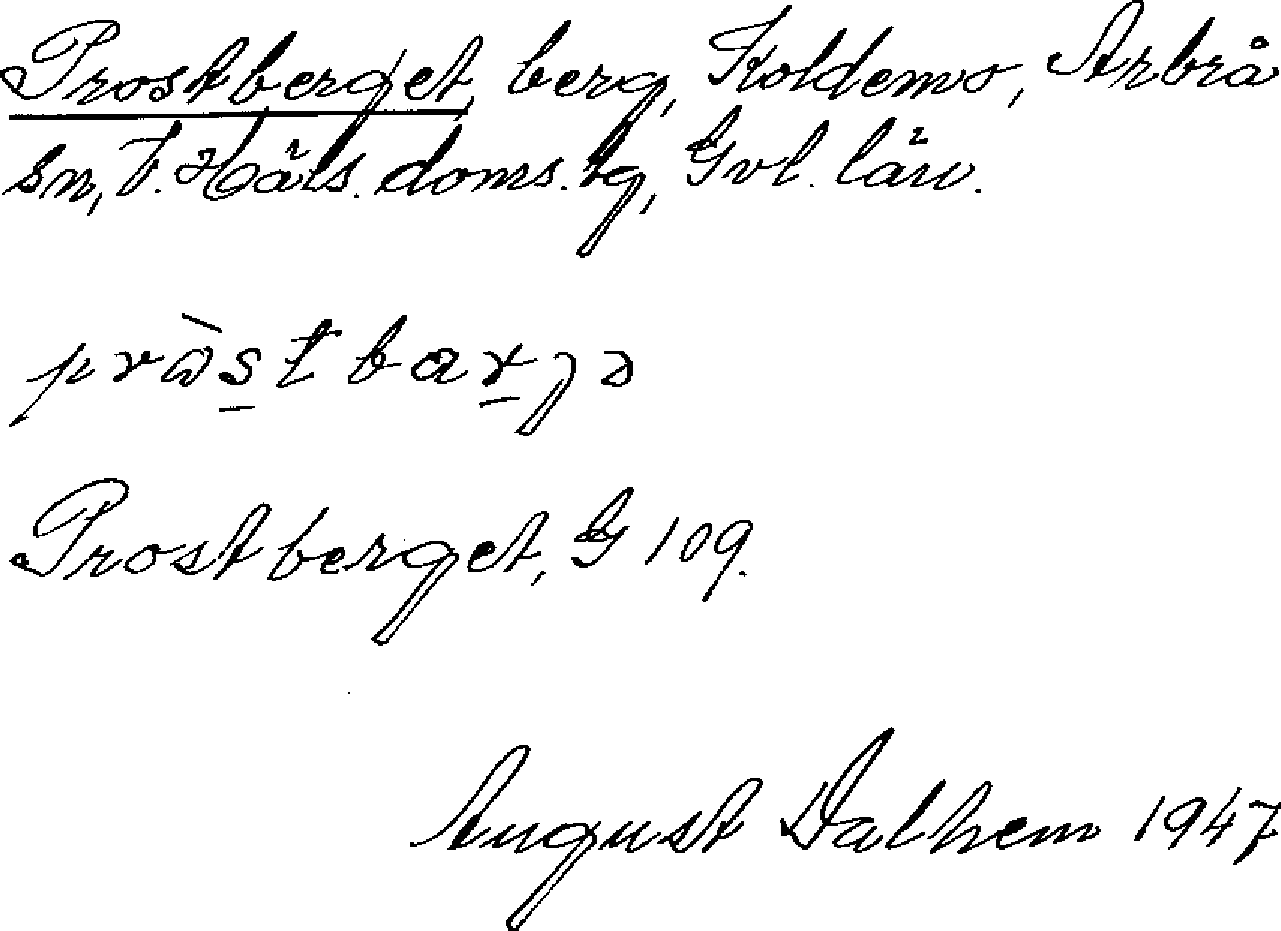 Prostberget, berg, Koldemo, Arbrå
sn, V. Häls. doms. tg, Gvl. län.
Prostberget, G 109.
August Dalhem 1947